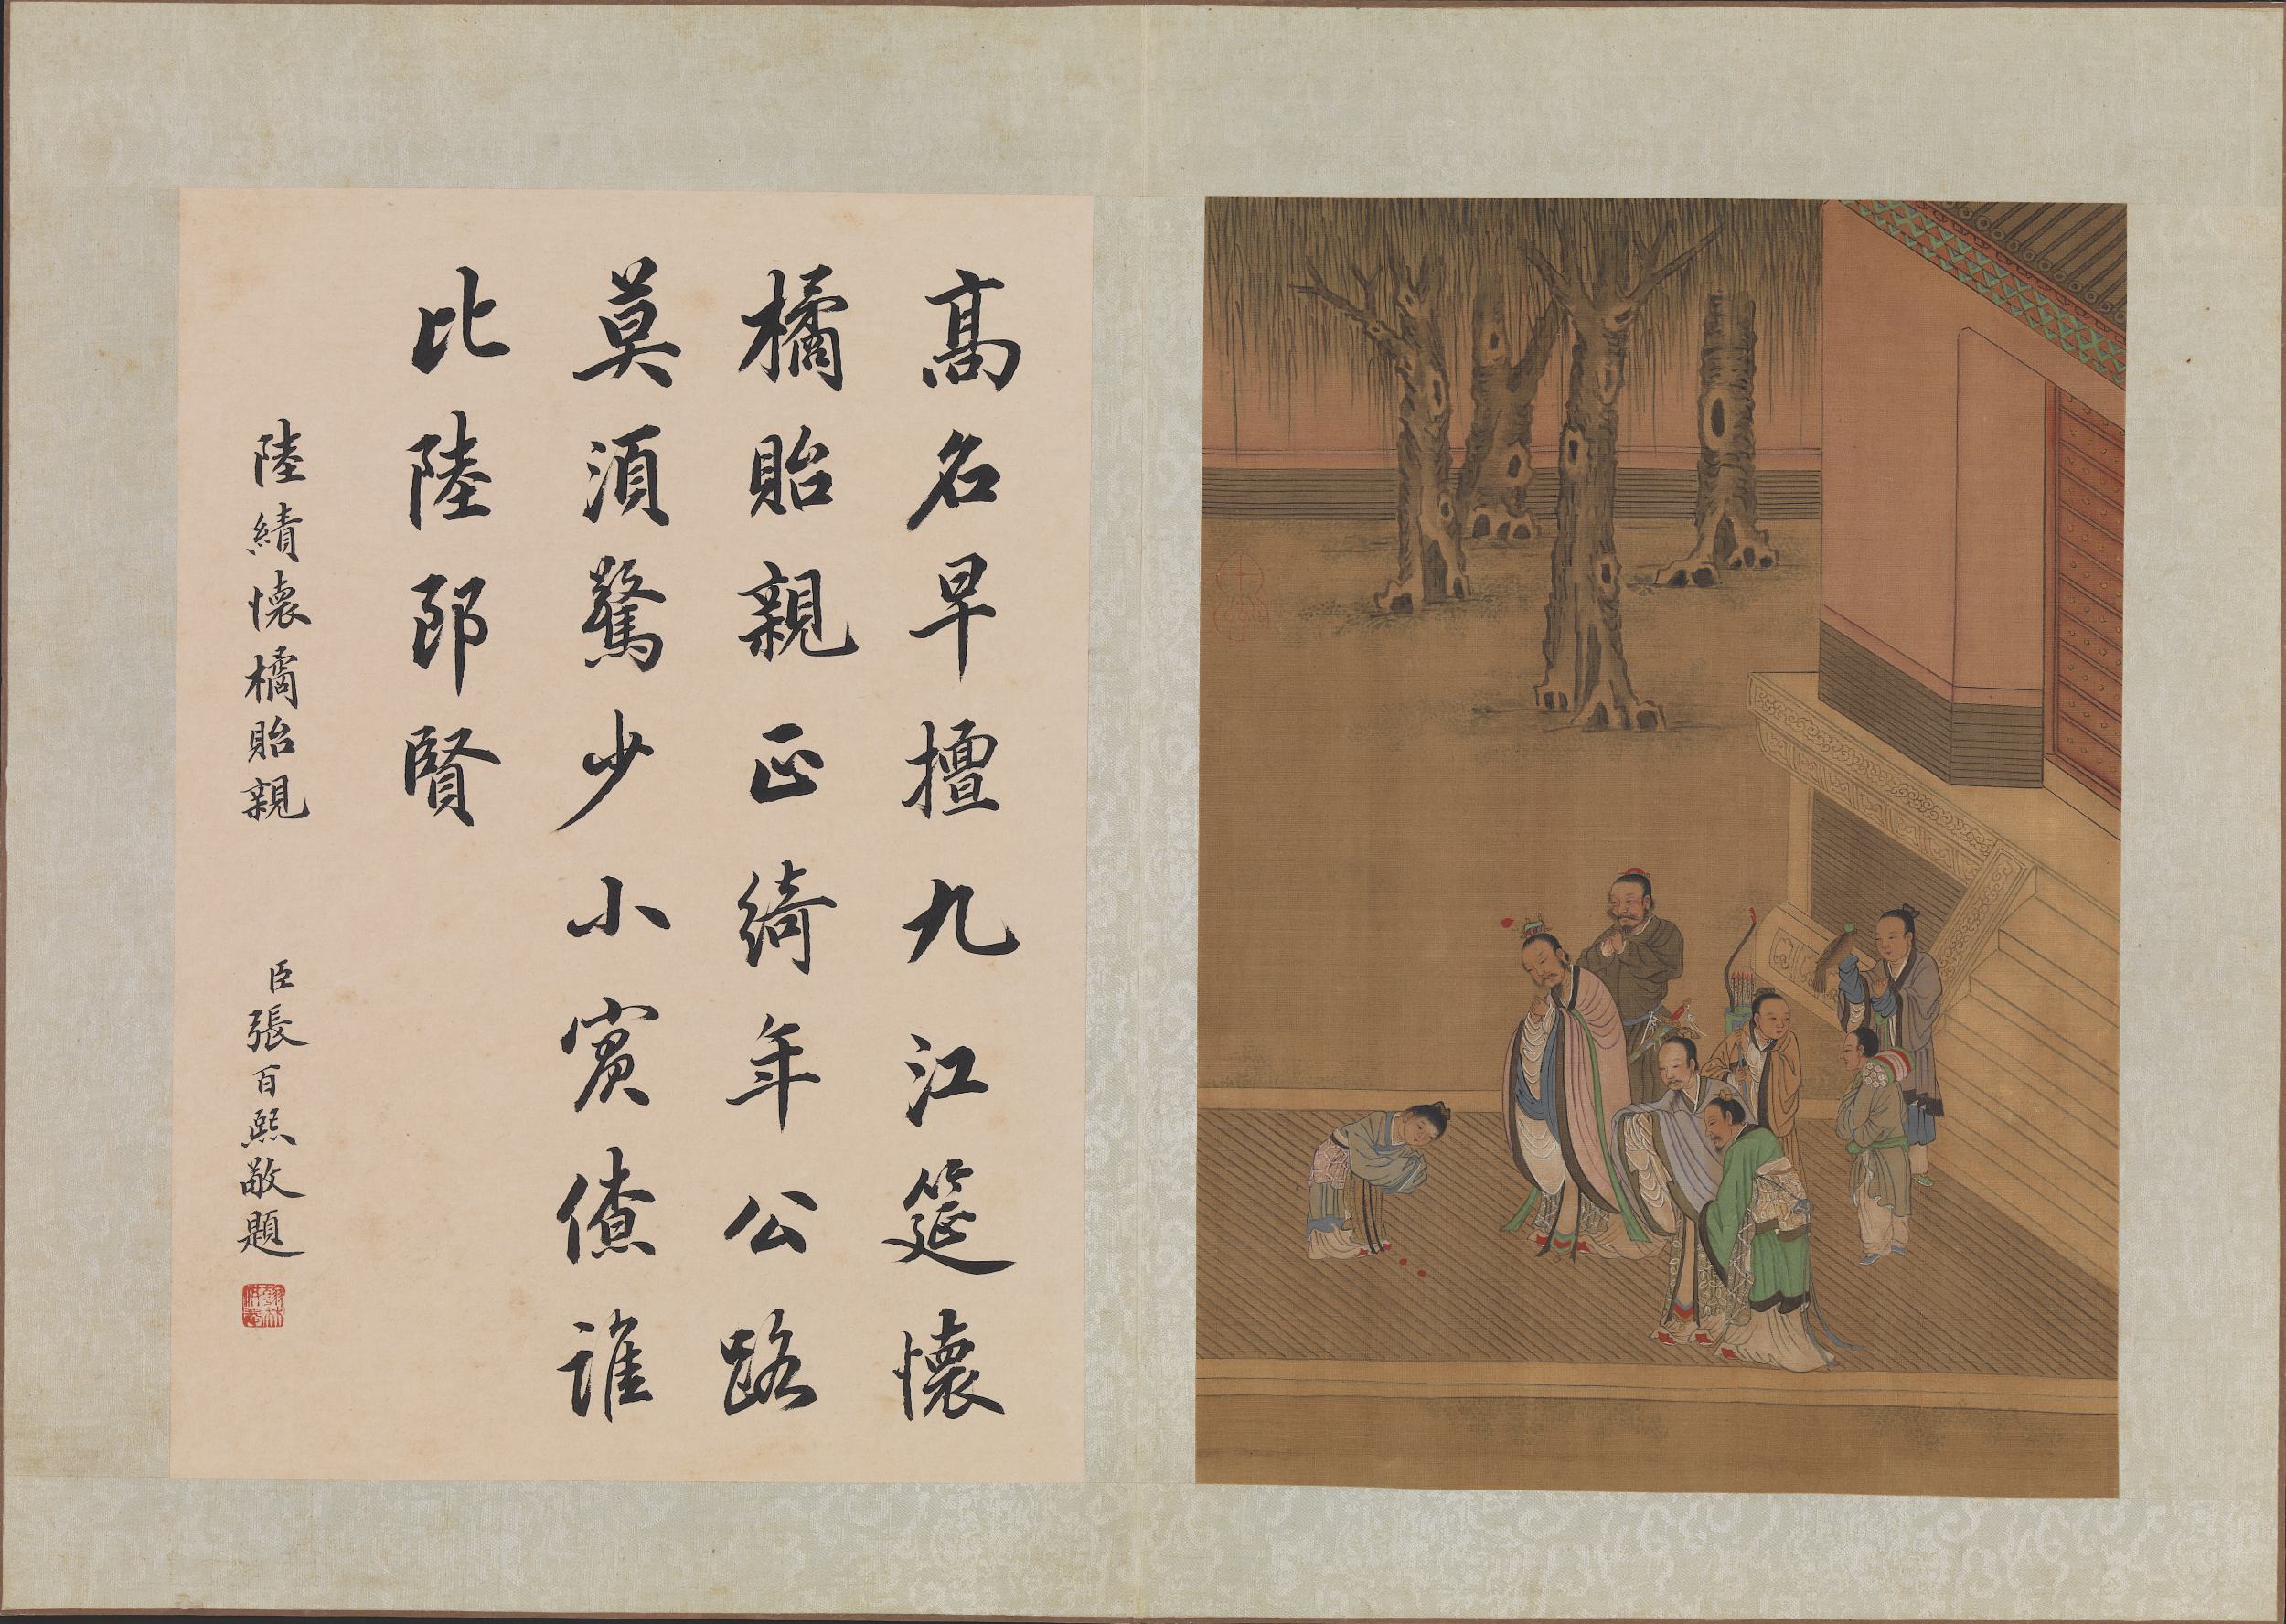 高名早擅九江筵懷
橘貽親正綺年公路
莫須驚少小賓僚誰
比陸郎賢
陸績懷橘貽親
臣張百熙敬題